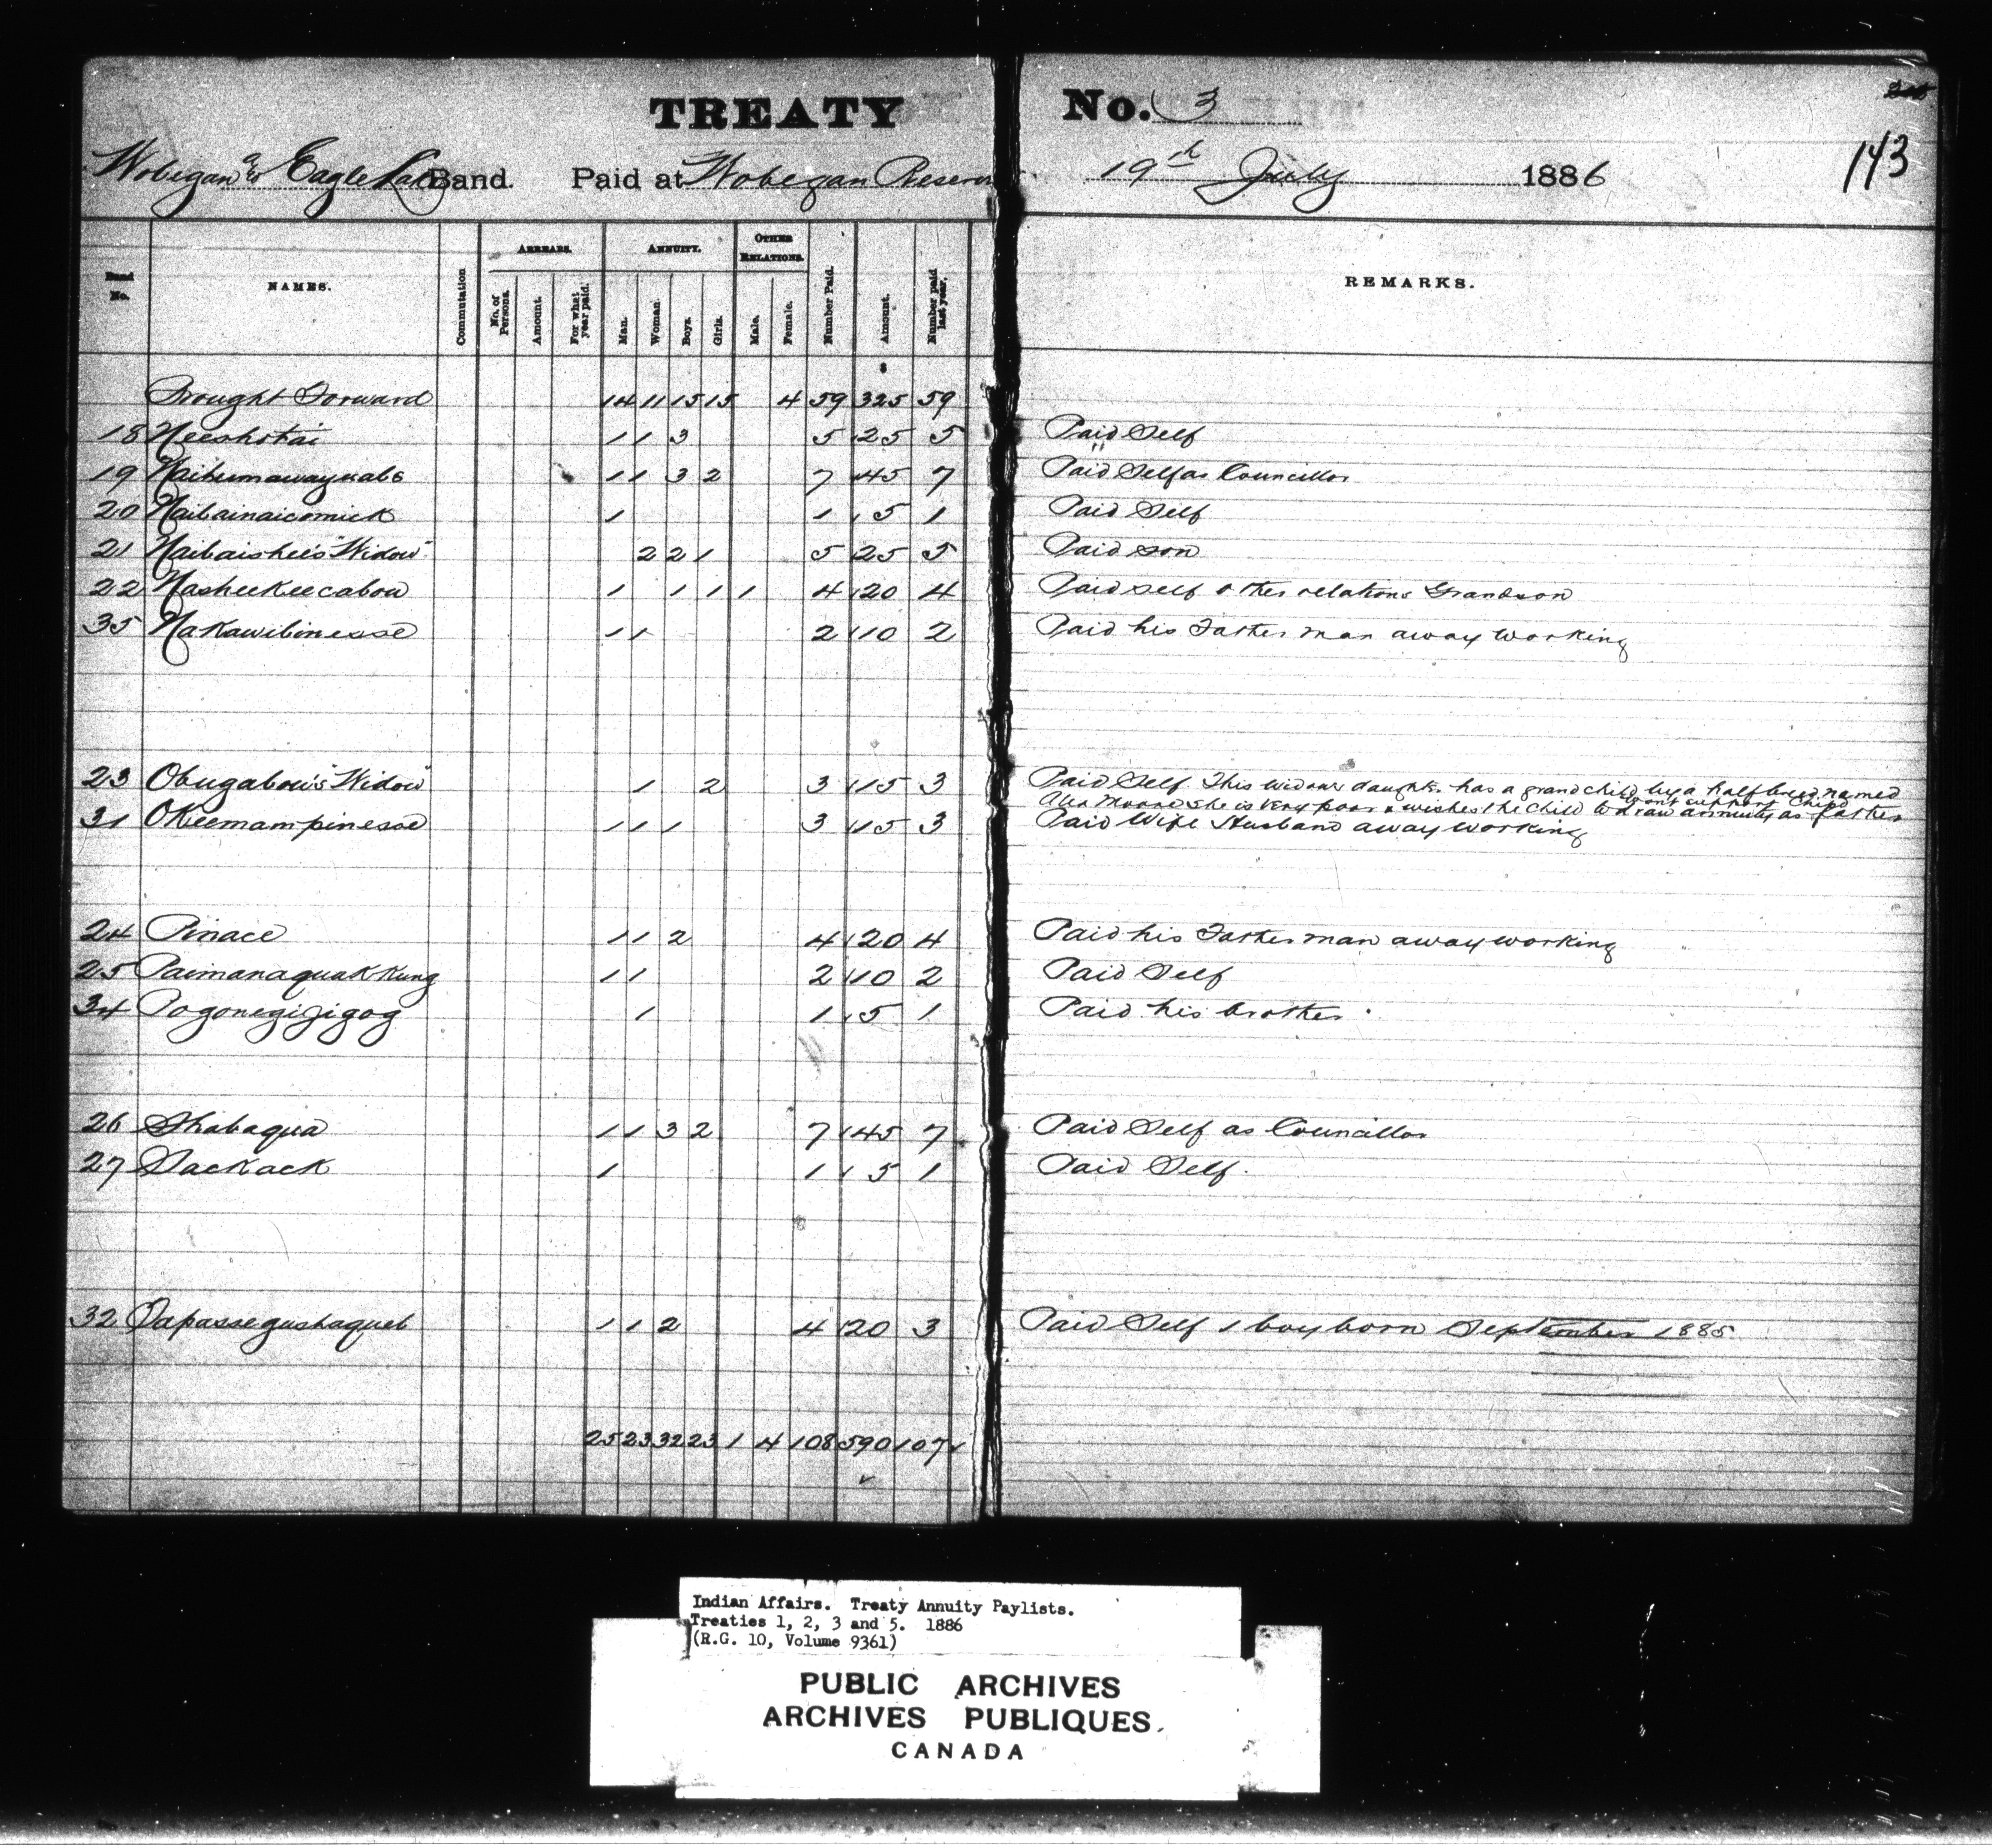 TREATY No. 3
143
Wobegan & Eagle Lake Band. Paid at Wobegan Reserve 19th July 1886
Band No. NAMES. Commutation ARREARS. No. of Persons. Amount. For what year paid. ANNUITY. Man. Woman. Boys. Girls. OTHER RELATIONS. Male. Female. Number Paid. Amount. Number paid last year. REMARKS.
$
Brought Forward 14 11 15 15 4 59 325 59
18 Neeshotai 1 1 3 5 25 5 Paid Self
19 Naihumawayuabs 1 1 3 2 7 45 7 Paid Self as Councillor
20 Naibainaicomick 1 1 5 1 Paid Self
21 Naibaishee's "Widow" 2 2 1 5 25 5 Paid son
22 Nasheekeecabow 1 1 1 1 4 20 4 Paid self other relations Grandson
35 Nakawibinesse 1 1 2 10 2 Paid his Father man away working
23 Obugabow's "Widow" 1 2 3 15 3 Paid Self This widows daughter has a grandchild by a halfbreed named
Alex Moore she is very poor & wishes the child to draw annuity as father
wont support child
31 Okeemampinesse 1 1 1 3 15 3 Paid Wife Husband away working
24 Pinace 1 1 2 4 20 4 Paid his Father man away working
25 Paimanaquakkung 1 1 2 10 2 Paid Self
34 Pogonegijigog 1 1 5 1 Paid his brother
26 Shabaqua 1 1 3 2 7 45 7 Paid Self as Councillor
27 Sackack 1 1 5 1 Paid Self.
32 Papassegushaqueb 1 1 2 4 20 3 Paid Self 1 boy born September 1885
25 23 32 23 1 4 108 590 107
Indian Affairs. Treaty Annuity Paylists.
Treaties 1, 2, 3 and 5. 1886
(R.G. 10, Volume 9361)
PUBLIC ARCHIVES
ARCHIVES PUBLIQUES
CANADA